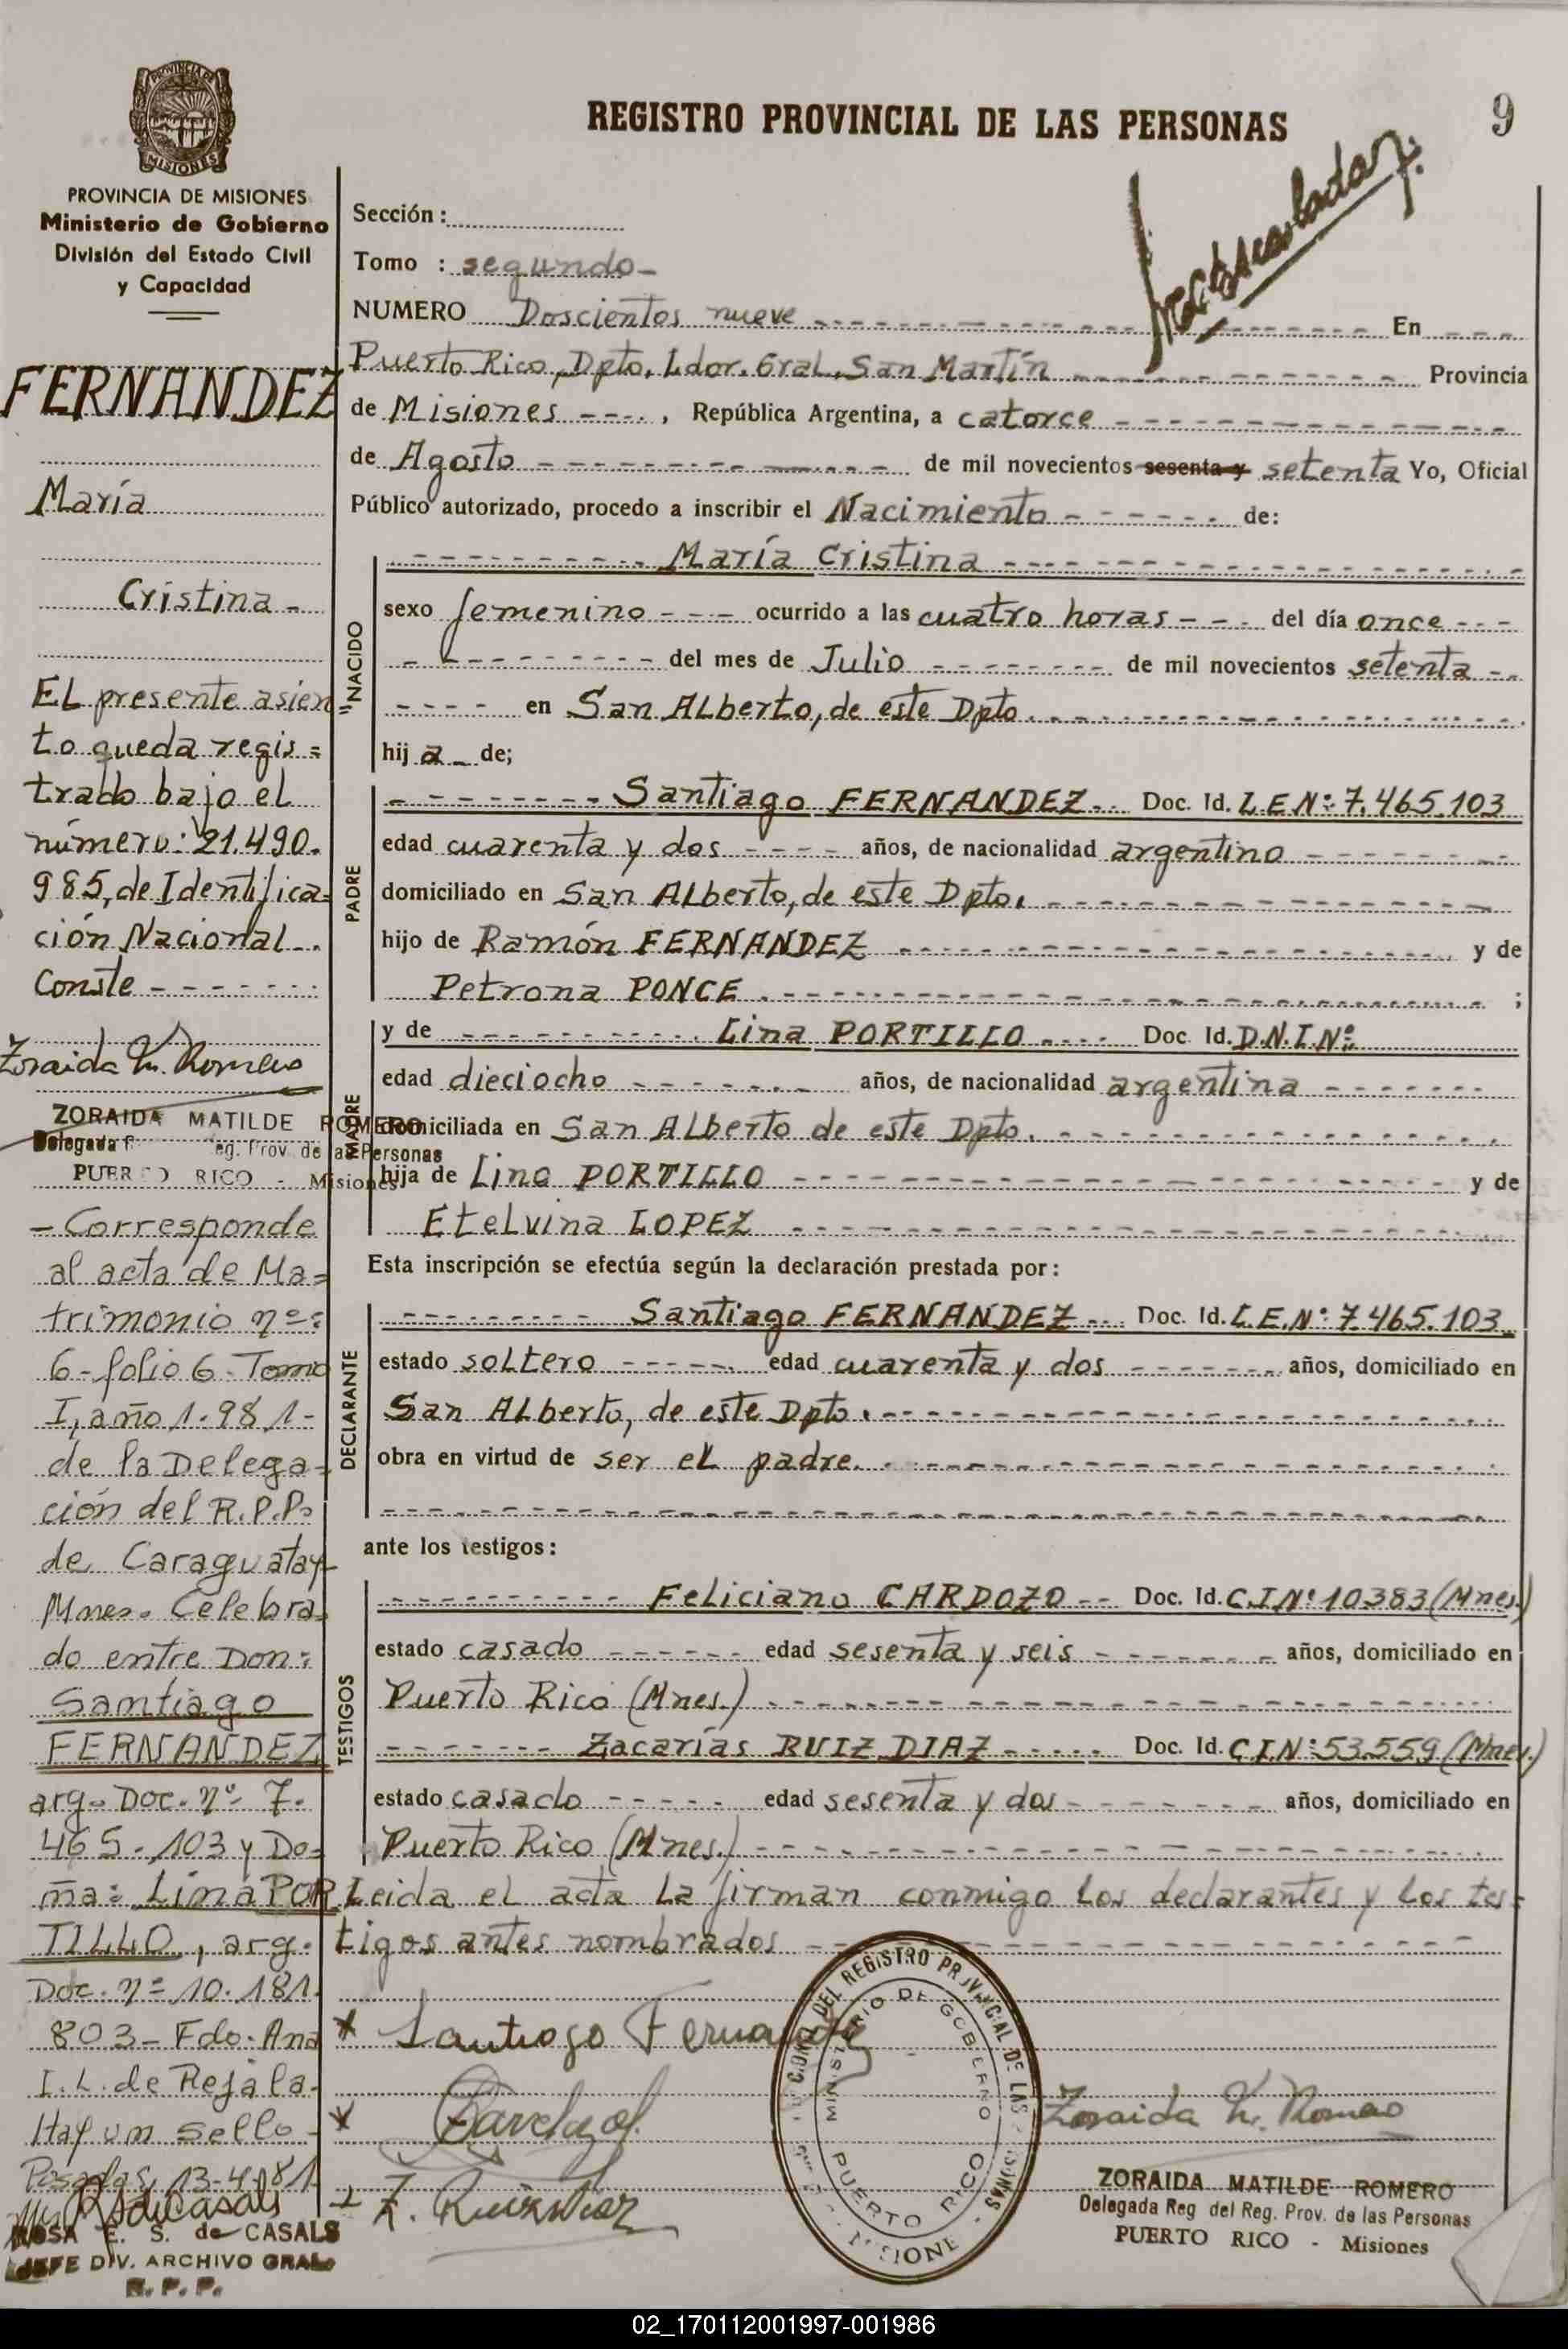 REGISTRO PROVINCIAL DE LAS PERSONAS
9
PROVINCIA DE
MISIONES
PROVINCIA DE MISIONES
Ministerio de Gobierno
División del Estado Civil
y Capacidad
FERNANDEZ
María
Cristina -
El presente asien
to queda regis=
trado bajo el
número: 21.490.
985, de Identifica=
ción Nacional.
Conste -------
Zoraida M. Romero
ZORAIDA MATILDE ROMERO
Delegada Reg. Prov. de las Personas
PUERTO RICO - Misiones
- Corresponde
al acta de Ma=
trimonio nº:
6-folio 6-Tomo
I, año 1.981-
de la Delega-
ción del R.P.P.
de Caraguatay
Mnes. Celebra-
do entre Don:
Santiago
FERNANDEZ
arg. Doc. nº 7.
465.103 y Do=
ña: Lina POR
TILLO, arg.
Doc. nº 10.181.
803- Fdo. Ana
I. L. de Rejala.
Hay un sello-
Posadas, 13-4-81.
ROSA E. S. de CASALS
JEFE DIV. ARCHIVO GRAL.
R. P. P.
Sección:
Tomo : segundo-
NUMERO Doscientos nueve ---- En ---
Puerto Rico, Dpto. Ldor. Gral. San Martín ---- Provincia
de Misiones ----, República Argentina, a catorce ----
de Agosto ---- de mil novecientos sesenta y setenta Yo, Oficial
Público autorizado, procedo a inscribir el Nacimiento ---- de:
---- María Cristina ----
NACIDO
sexo femenino ---- ocurrido a las cuatro horas --- del día once ---
---- del mes de Julio ---- de mil novecientos setenta --
---- en San Alberto, de este Dpto. ----
hij a_ de;
PADRE
---- Santiago FERNANDEZ -- Doc. Id. L.E.Nº: 7.465.103
edad cuarenta y dos ---- años, de nacionalidad argentino ----
domiciliado en San Alberto, de este Dpto. ----
hijo de Ramón FERNANDEZ ---- y de
Petrona PONCE. ---- ;
MADRE
y de ---- Lina PORTILLO ---- Doc. Id. D.N.I.Nº
edad dieciocho ---- años, de nacionalidad argentina ----
domiciliada en San Alberto de este Dpto. ----
hija de Lino PORTILLO ---- y de
Etelvina LOPEZ ----
Esta inscripción se efectúa según la declaración prestada por:
DECLARANTE
---- Santiago FERNANDEZ -- Doc. Id. L.E.Nº: 7.465.103
estado soltero ---- edad cuarenta y dos ---- años, domiciliado en
San Alberto, de este Dpto. ----
obra en virtud de ser el padre. ----
ante los testigos:
TESTIGOS
---- Feliciano CARDOZO -- Doc. Id. C.I.Nº 10.383 (Mnes.)
estado casado ---- edad sesenta y seis ---- años, domiciliado en
Puerto Rico (Mnes.) ----
---- Zacarías RUIZ DIAZ ---- Doc. Id. C.I.Nº: 53.559 (Mnes.)
estado casado ---- edad sesenta y dos ---- años, domiciliado en
Puerto Rico (Mnes.) ----
Leida el acta la firman conmigo los declarantes y los tes=
tigos antes nombrados ----
Santiago Fernandez
Z. Ruiz Diaz
Zoraida M. Romero
DEL REGISTRO PROVINCIAL DE LAS PERSONAS
MINISTERIO DE GOBIERNO
PUERTO RICO
MISIONES
ZORAIDA MATILDE ROMERO
Delegada Reg del Reg. Prov. de las Personas
PUERTO RICO - Misiones
02_170112001997-001986